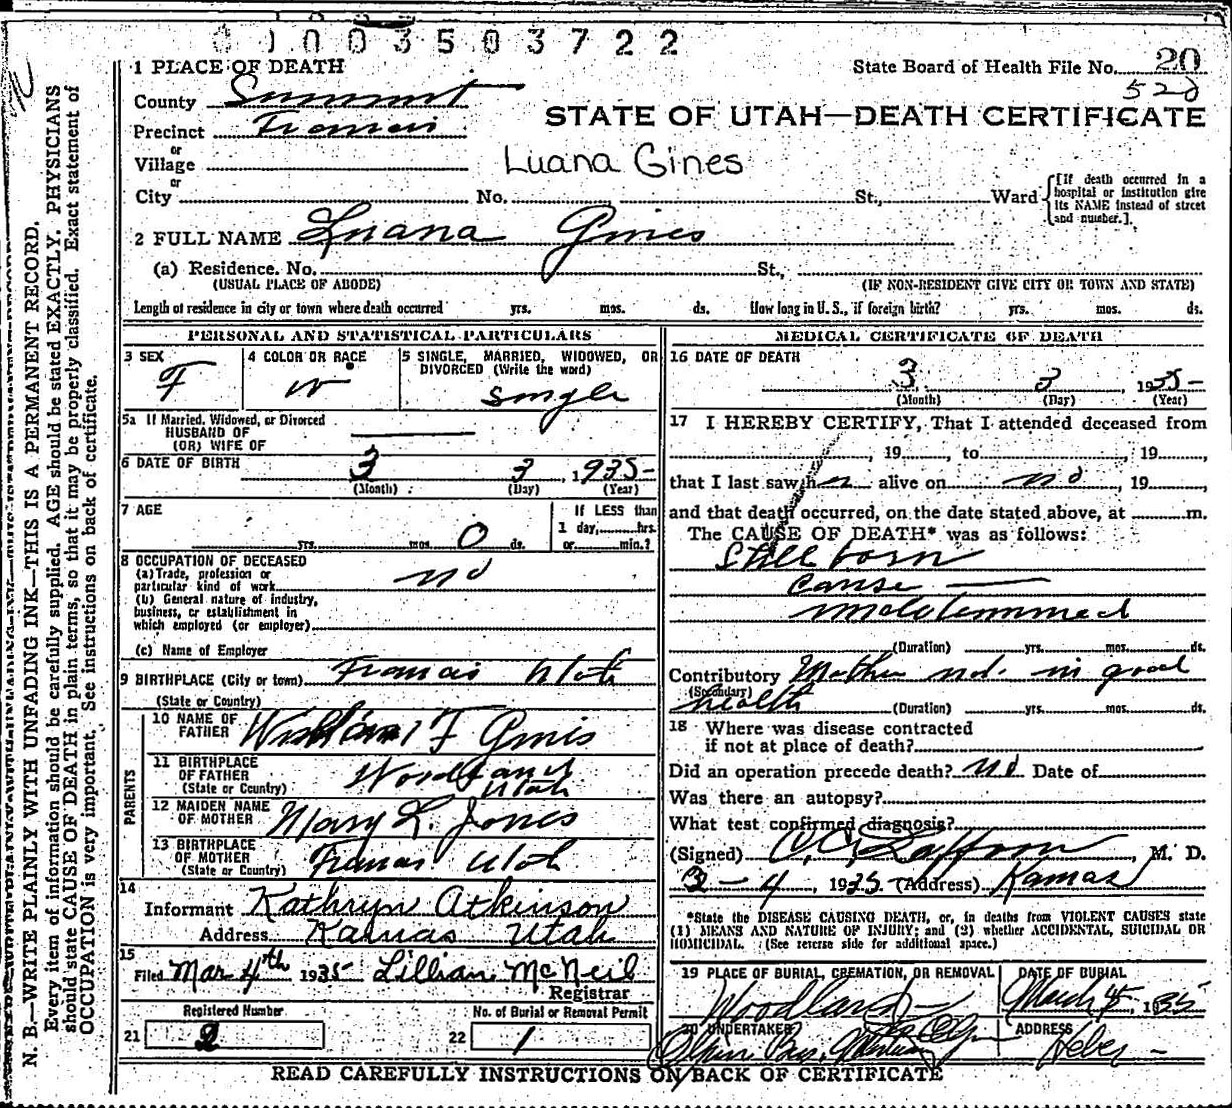 0 1 0 0 3 5 0 3 7 2 2
1 PLACE OF DEATH
State Board of Health File No. 20
528
County Summit
STATE OF UTAH—DEATH CERTIFICATE
Precinct Francis
or
Village
Luana Gines
or
City No. St., Ward
[If death occurred in a
hospital or institution give
its NAME instead of street
and number.]
2 FULL NAME Luana Gines
(a) Residence. No. St.,
(USUAL PLACE OF ABODE) (IF NON-RESIDENT GIVE CITY OR TOWN AND STATE)
Length of residence in city or town where death occurred yrs. mos. ds. How long in U. S., if foreign birth? yrs. mos. ds.
PERSONAL AND STATISTICAL PARTICULARS
3 SEX
F
4 COLOR OR RACE
W
5 SINGLE, MARRIED, WIDOWED, OR
DIVORCED (Write the word)
Single
5a If Married, Widowed, or Divorced
HUSBAND OF
(OR) WIFE OF
6 DATE OF BIRTH 3 3, 1935
(Month) (Day) (Year)
7 AGE
yrs. mos. 0 ds.
If LESS than
1 day, hrs.
or min.?
8 OCCUPATION OF DECEASED
(a) Trade, profession or
particular kind of work no
(b) General nature of industry,
business, or establishment in
which employed (or employer)
(c) Name of Employer
9 BIRTHPLACE (City or town) Francis Utah
(State or Country)
PARENTS
10 NAME OF
FATHER William F Gines
11 BIRTHPLACE
OF FATHER
(State or Country)
Woodland
Utah
12 MAIDEN NAME
OF MOTHER Mary L. Jones
13 BIRTHPLACE
OF MOTHER
(State or Country)
Francis Utah
14
Informant Kathryn Atkinson
Address Kamas Utah
15
Filed Mar 4th 1935 Lillian McNeil
Registrar
Registered Number
21 2
No. of Burial or Removal Permit
22 1
MEDICAL CERTIFICATE OF DEATH
16 DATE OF DEATH
3 3 1935
(Month) (Day) (Year)
17 I HEREBY CERTIFY, That I attended deceased from
, 19 , to , 19 ,
that I last saw her alive on no , 19 ,
and that death occurred, on the date stated above, at m.
The CAUSE OF DEATH* was as follows:
Still born
cause —
(Duration) yrs. mos. ds.
Contributory Mother not in good
(Secondary)
health (Duration) yrs. mos. ds.
18 Where was disease contracted
if not at place of death?
Did an operation precede death? no Date of
Was there an autopsy?
What test confirmed diagnosis?
(Signed) , M. D.
3 - 4, 1935 (Address) Kamas
*State the DISEASE CAUSING DEATH, or, in deaths from VIOLENT CAUSES state
(1) MEANS AND NATURE OF INJURY; and (2) whether ACCIDENTAL, SUICIDAL OR
HOMICIDAL. (See reverse side for additional space.)
19 PLACE OF BURIAL, CREMATION, OR REMOVAL
Woodland
DATE OF BURIAL
March 4, 1935
20 UNDERTAKER
Olpin Bros.
ADDRESS
Heber
READ CAREFULLY INSTRUCTIONS ON BACK OF CERTIFICATE
N. B.—WRITE PLAINLY WITH UNFADING INK—THIS IS A PERMANENT RECORD.
Every item of information should be carefully supplied. AGE should be stated EXACTLY. PHYSICIANS
should state CAUSE OF DEATH in plain terms, so that it may be properly classified. Exact statement of
OCCUPATION is very important. See instructions on back of certificate.